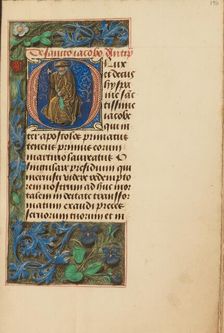 De sancto iacobo
O Lux
et decus
hyspa
nie sāc
tissime
iacobe
qui in
ter apostolos primatum
tenens primus eorum
martirio laureatus O
singulare presidium qui
meruisti videre redempto
rem nostrum adhuc mor
talem in deitate transfor
matum exaudi preces
seruorum tuorum et in